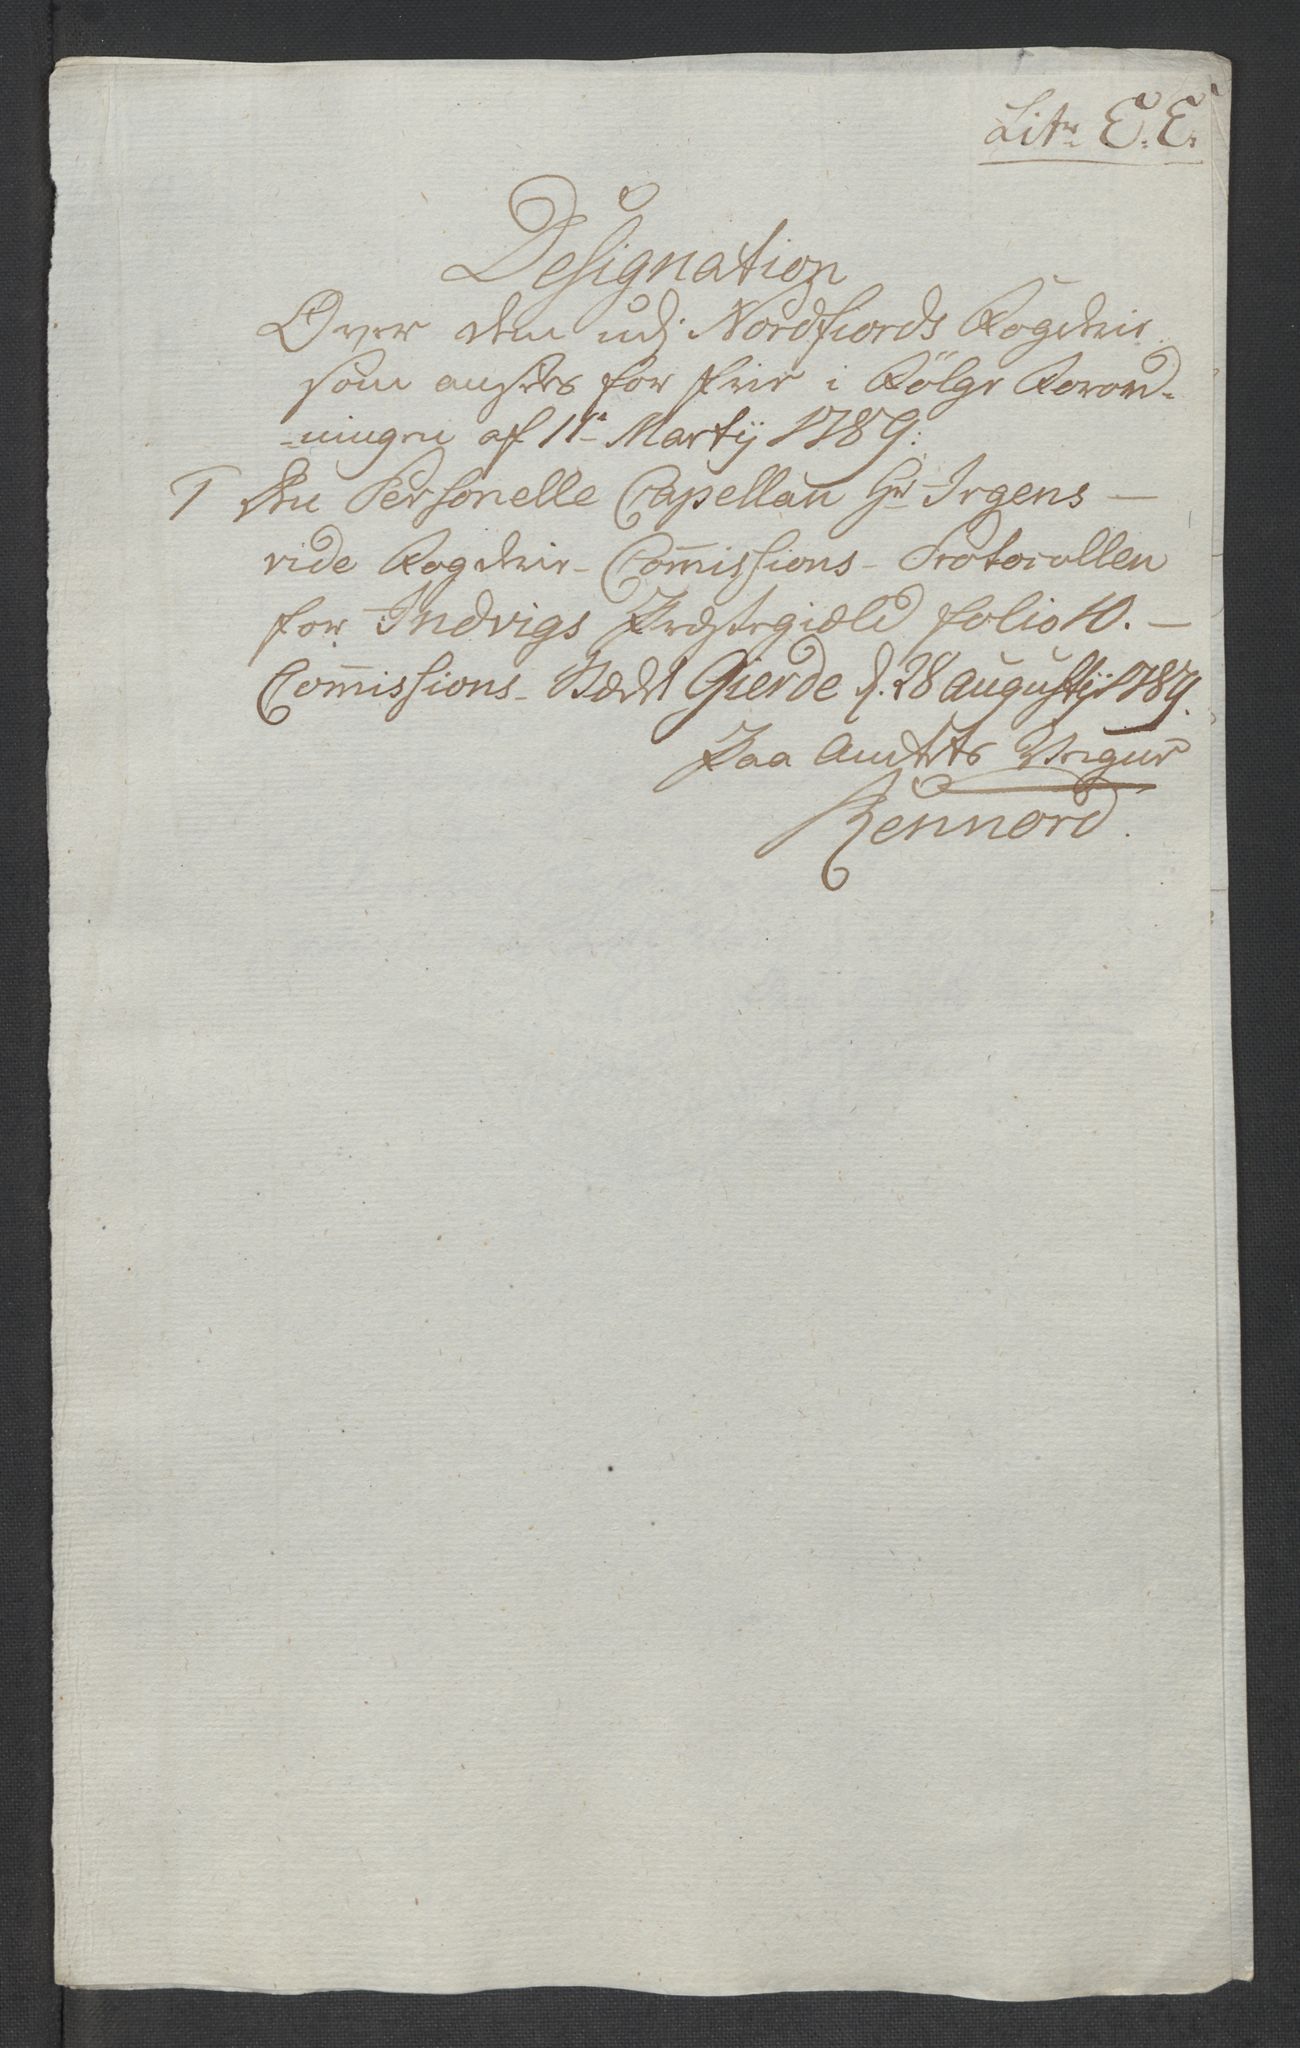 Litr E. E.
Designation
Over dem udj Nordfiords Fogderie
som ansees for frie i Følge Forord-
-ningen af 11te Martij 1789:
1 Den Personelle Capellan Hr Irgens —
vide Fogderie- Commissions- Protocollen
for Indvigs Præstegield folio 10. —
Commissions- Stædet Gierde d. 28 augustij 1789.
Paa Amtets Vegne
Rennord.